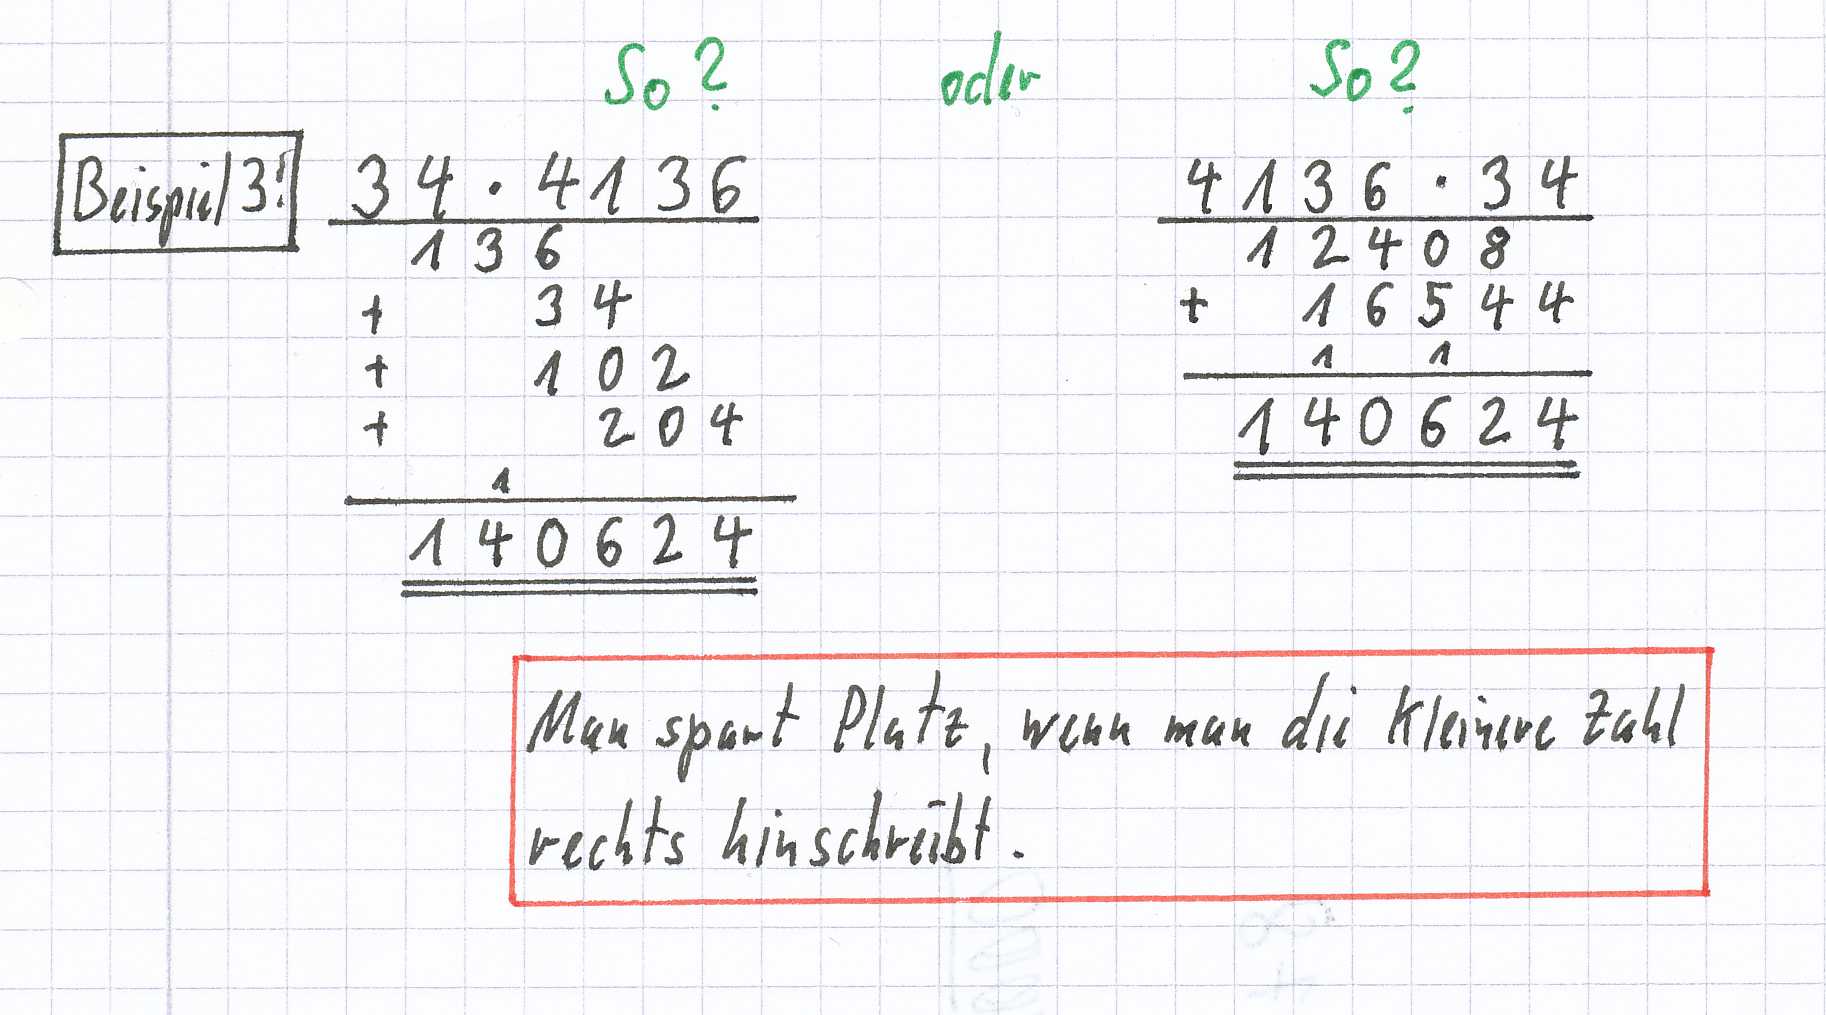 So? oder So?
Beispiel 3: 34 · 4136 4136 · 34
136 12408
+ 34 + 16544
+ 102 1 1
+ 204 140624
1
140624
Man spart Platz, wenn man die kleinere Zahl
rechts hinschreibt.